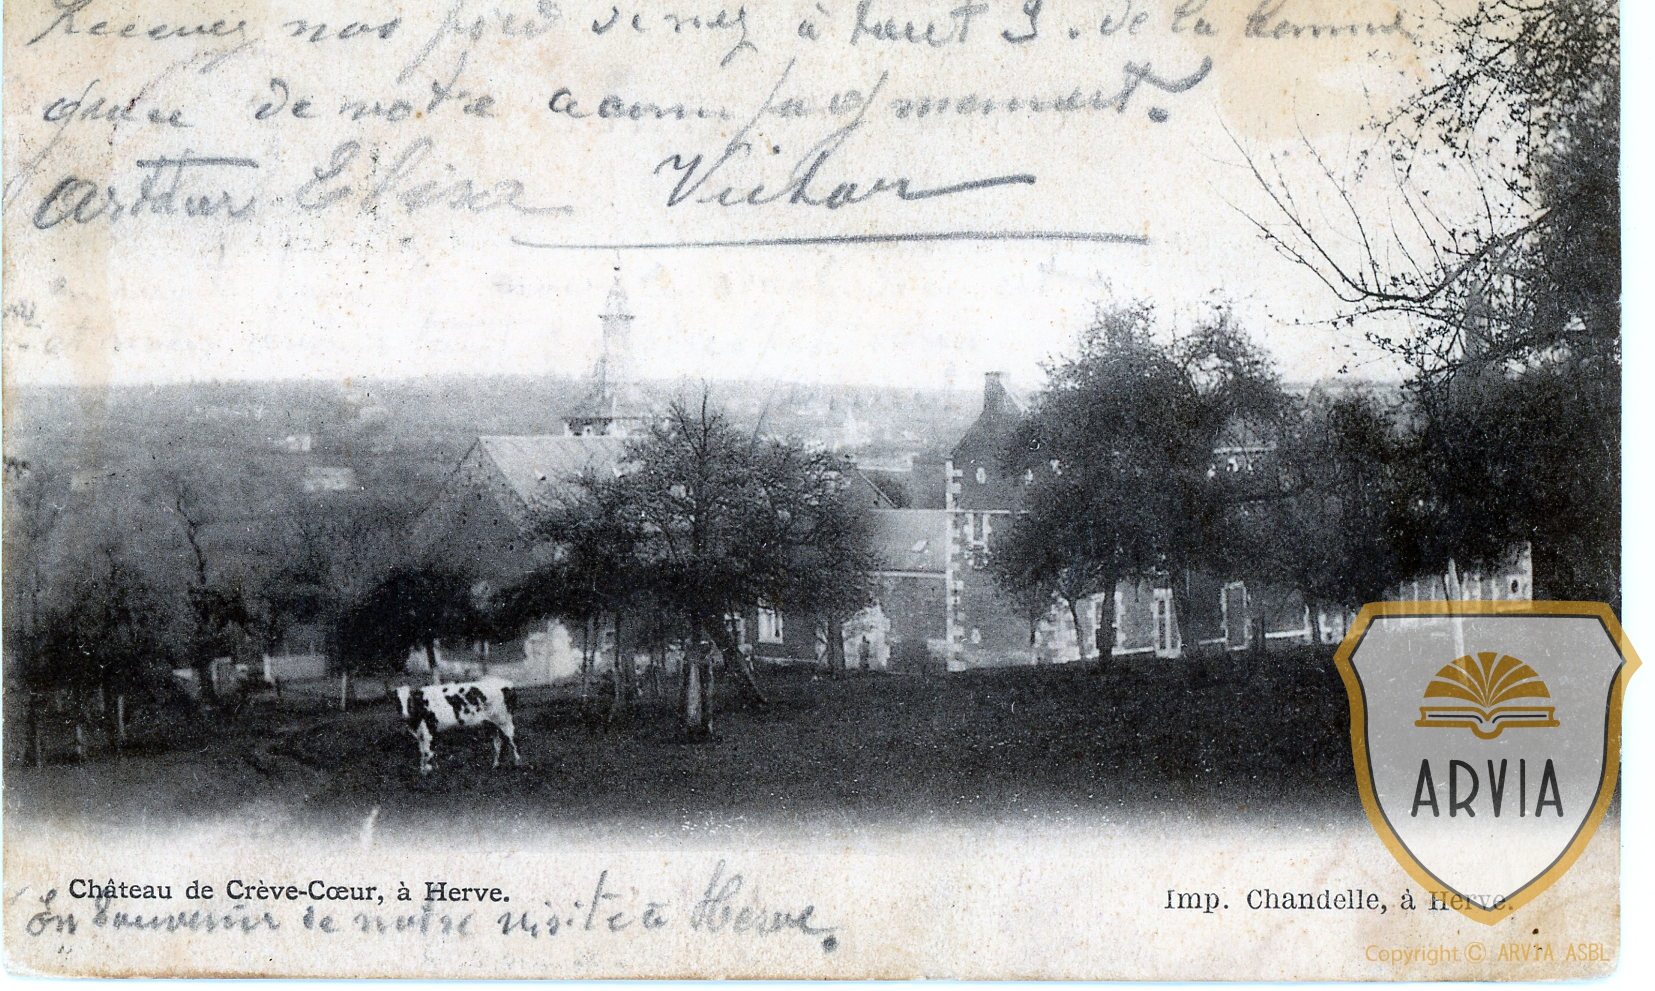 Recevez nos de nez à tous 3. de la
de notre
Arthur Elisa Vichar
Château de Crève-Cœur, à Herve.
Imp. Chandelle, à Herve.
En souvenir de notre visite à Herve.
ARVIA
Copyright © ARVIA ASBL